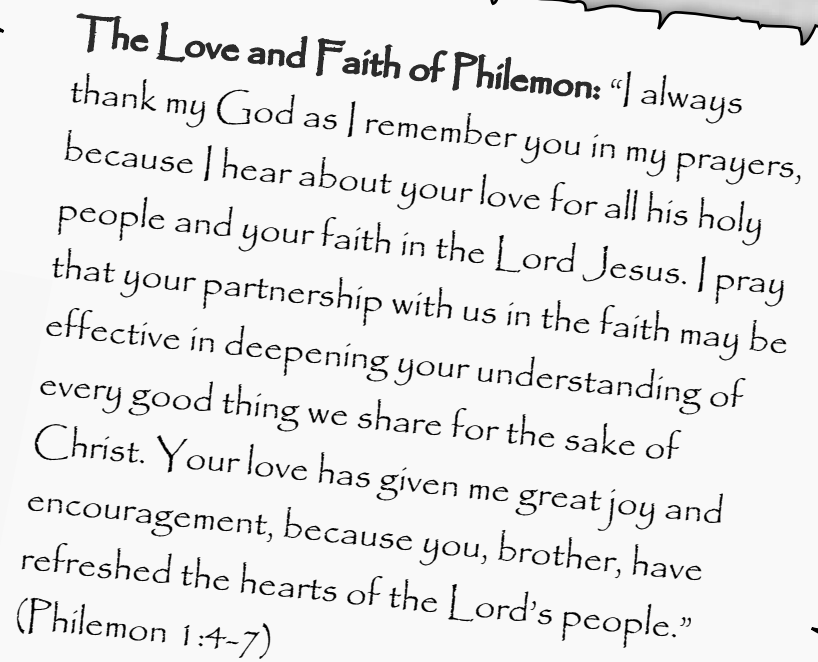 The Love and Faith of Philemon: “I always
thank my God as I remember you in my prayers,
because I hear about your love for all his holy
people and your faith in the Lord Jesus. I pray
that your partnership with us in the faith may be
effective in deepening your understanding of
every good thing we share for the sake of
Christ. Your love has given me great joy and
encouragement, because you, brother, have
refreshed the hearts of the Lord’s people.”
(Philemon 1:4-7)